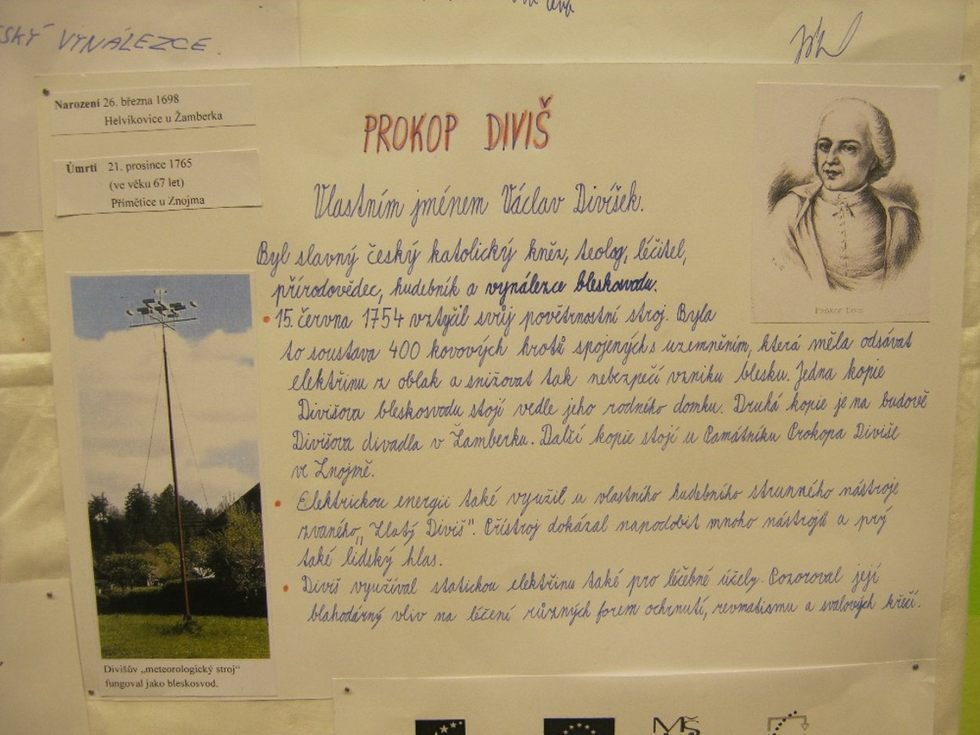 SKÝ VYNÁLEZCE.
Narození 26. března 1698
Helvíkovice u Žamberka
Úmrtí 21. prosince 1765
(ve věku 67 let)
Přímětice u Znojma
PROKOP DIVIŠ
Vlastním jménem Václav Divíšek.
Byl slavný český katolický kněz, teolog, léčitel,
přírodovědec, hudebník a vynálezce bleskovodu.
• 15. června 1754 vztyčil svůj povětrnostní stroj. Byla
to soustava 400 kovových hrotů spojených s uzemněním, která měla odsávat
elektřinu z oblak a snižovat tak nebezpečí vzniku blesku. Jedna kopie
Divišova bleskosvodu stojí vedle jeho rodného domku. Druhá kopie je na budově
Divišova divadla v Žamberku. Další kopie stojí u Památníku Prokopa Diviše
ve Znojmě.
• Elektrickou energii také využil u vlastního hudebního strunného nástroje
zvaného „Zlatý Diviš". Přístroj dokázal napodobit mnoho nástrojů a prý
také lidský hlas.
• Diviš využíval statickou elektřinu také pro léčebné účely. Pozoroval její
blahodárný vliv na léčení různých forem ochrnutí, revmatismu a svalových křečí.
PROKOP DIVIŠ
Divišův „meteorologický stroj"
fungoval jako bleskosvod.